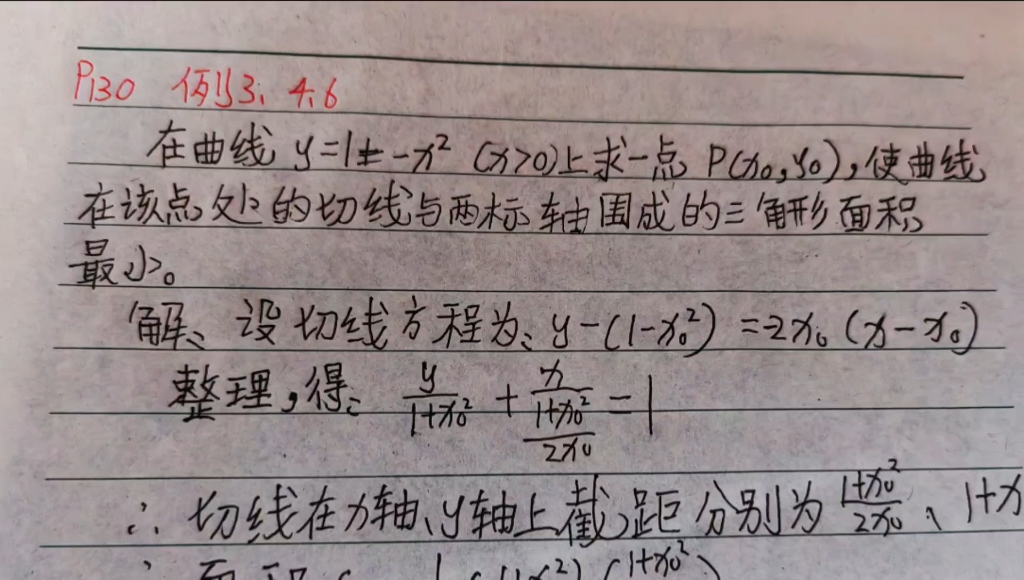 P130 例3、4、6
在曲线 y=1-x² (x>0)上求一点 P(x₀,y₀),使曲线
在该点处的切线与两标轴围成的三角形面积
最小。
解、设切线方程为: y-(1-x₀²) =-2x₀(x-x₀)
整理,得: y/(1+x₀²) + x/((1+x₀²)/(2x₀)) = 1
∴ 切线在x轴、y轴上截距分别为 (1+x₀²)/(2x₀)、1+x